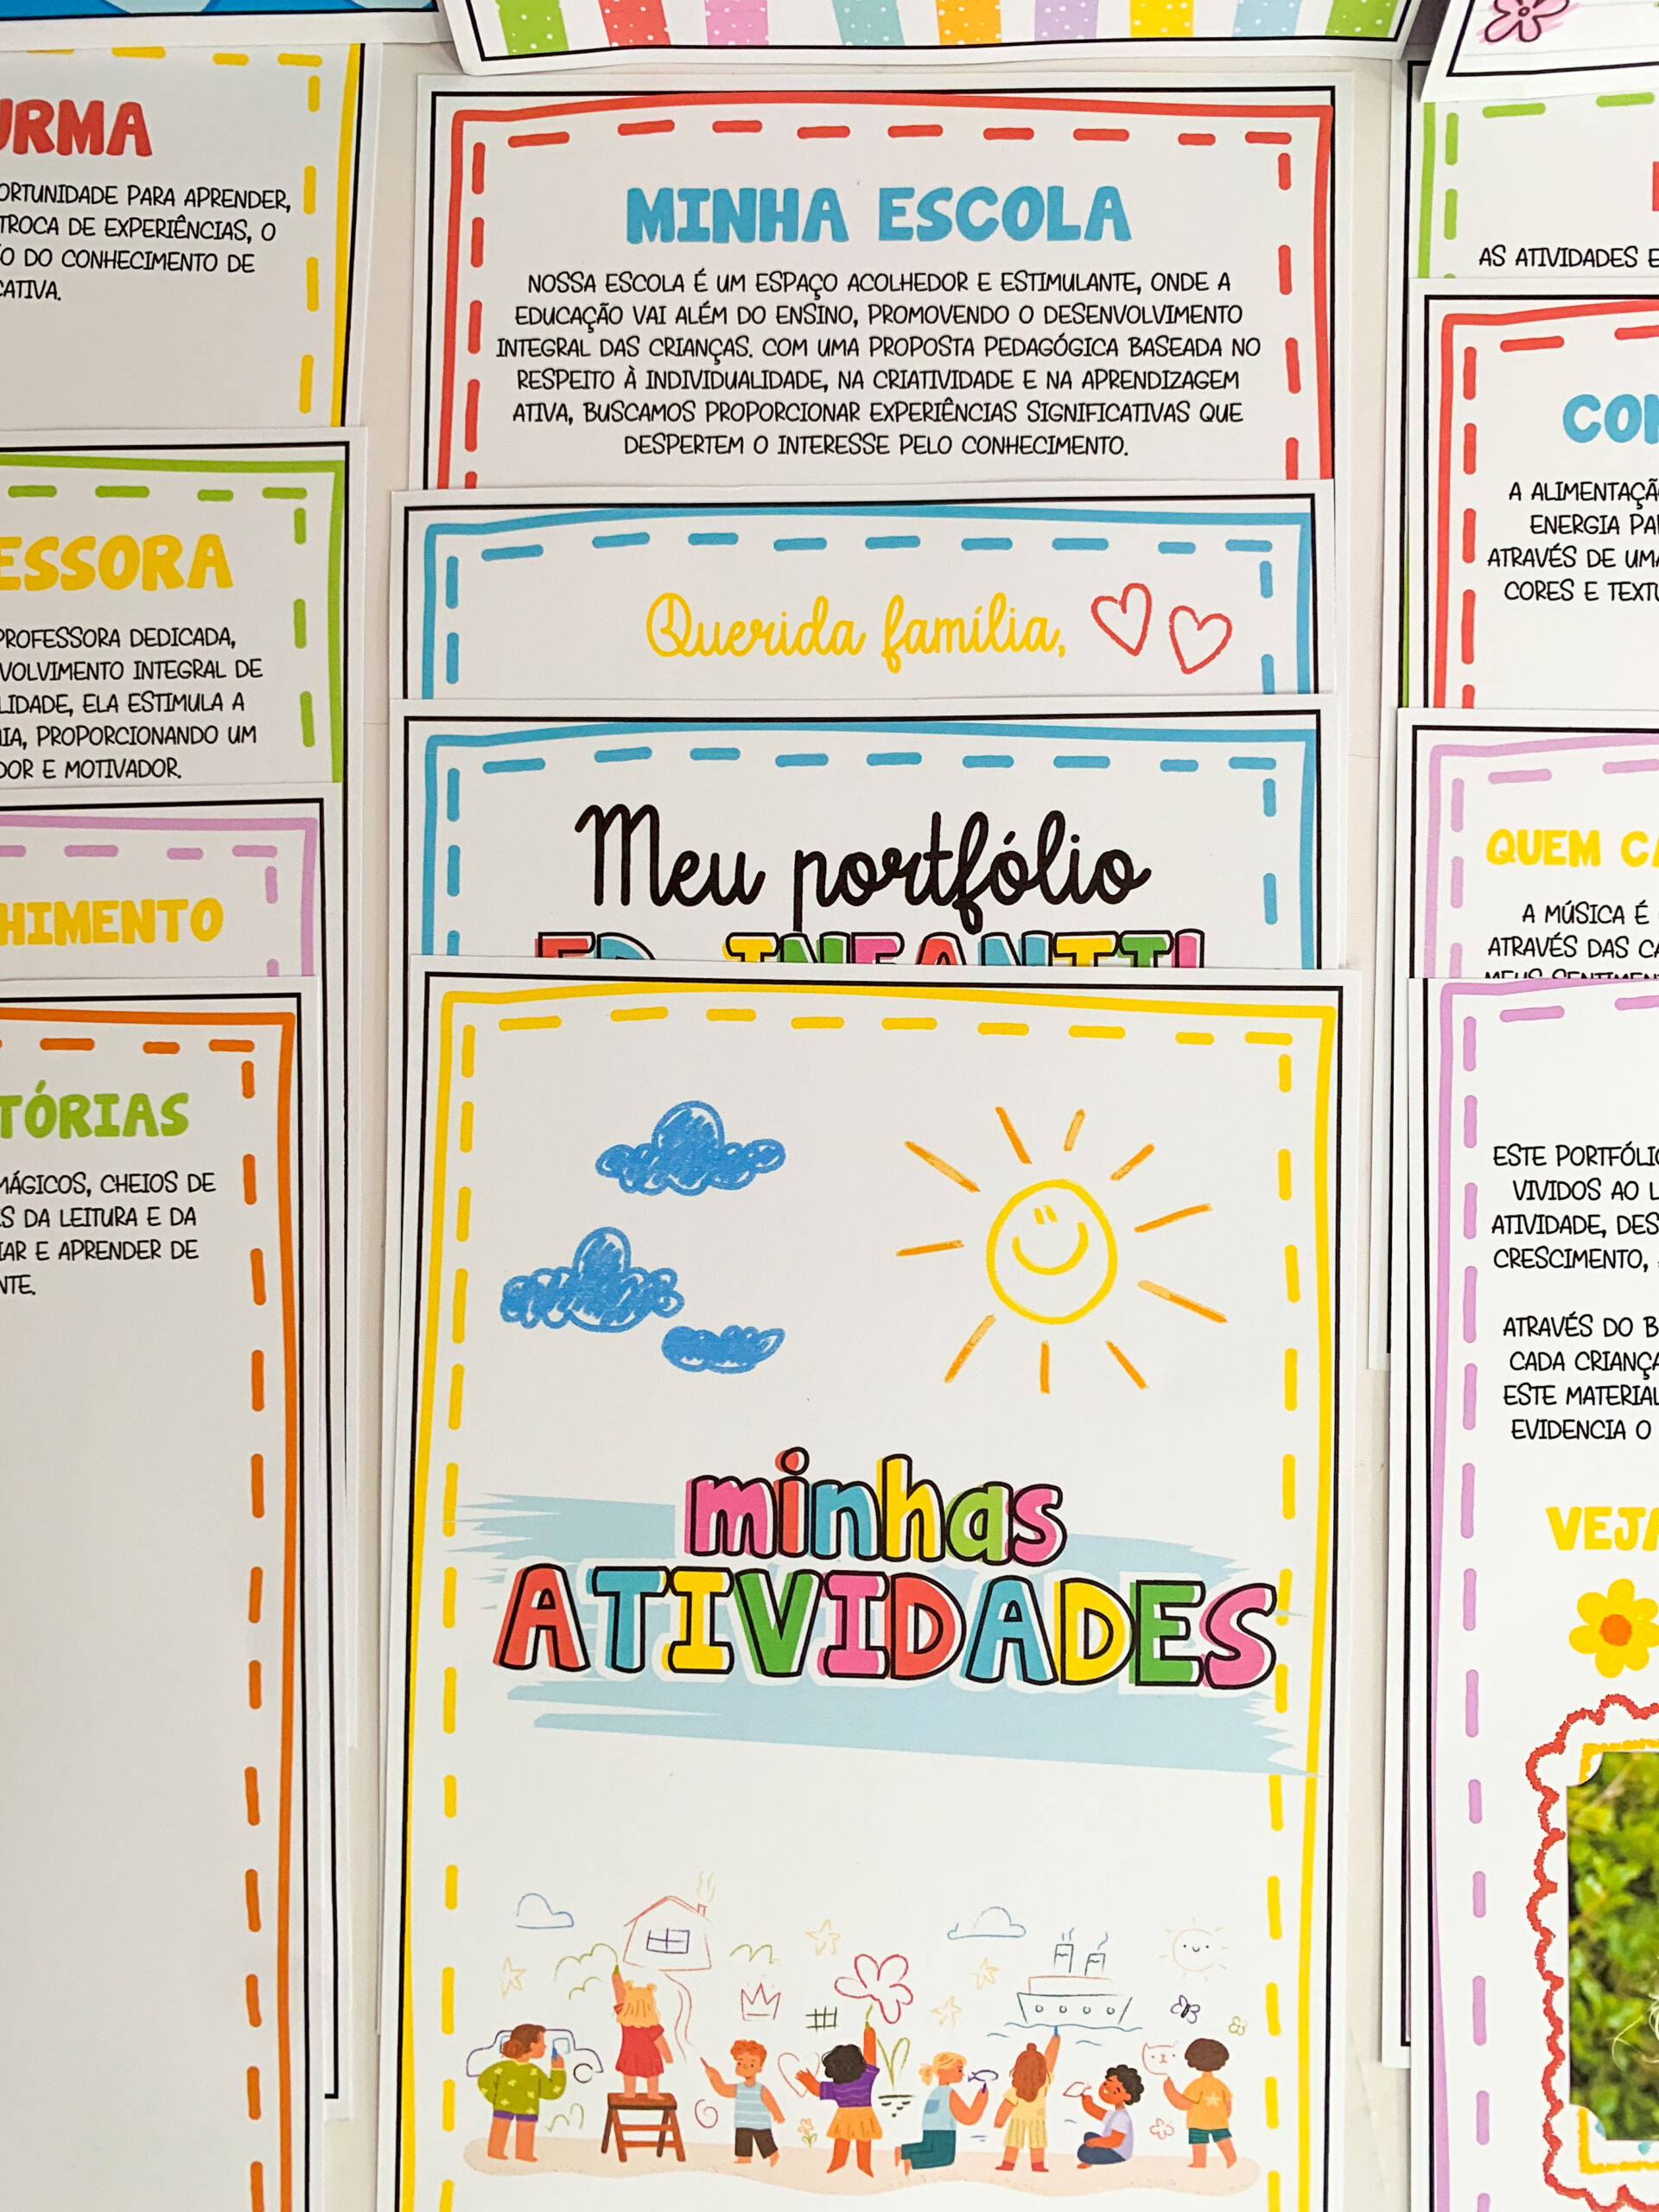 ORTUNIDADE PARA APRENDER,
TROCA DE EXPERIÊNCIAS, O
DO CONHECIMENTO DE
ESSORA
PROFESSORA DEDICADA,
VOLVIMENTO INTEGRAL DE
LIDADE, ELA ESTIMULA A
PROPORCIONANDO UM
DOR E MOTIVADOR.
HIMENTO
TÓRIAS
MÁGICOS, CHEIOS DE
S DA LEITURA E DA
IAR E APRENDER DE
NTE.
MINHA ESCOLA
NOSSA ESCOLA É UM ESPAÇO ACOLHEDOR E ESTIMULANTE, ONDE A
EDUCAÇÃO VAI ALÉM DO ENSINO, PROMOVENDO O DESENVOLVIMENTO
INTEGRAL DAS CRIANÇAS. COM UMA PROPOSTA PEDAGÓGICA BASEADA NO
RESPEITO À INDIVIDUALIDADE, NA CRIATIVIDADE E NA APRENDIZAGEM
ATIVA, BUSCAMOS PROPORCIONAR EXPERIÊNCIAS SIGNIFICATIVAS QUE
DESPERTEM O INTERESSE PELO CONHECIMENTO.
Querida família,
Meu portfólio
ED. INFANTIL
minhas
ATIVIDADES
AS ATIVIDADES E
A ALIMENTAÇÃ
ENERGIA PA
ATRAVÉS DE UMA
CORES E TEXTU
QUEM CA
A MÚSICA É
ATRAVÉS DAS CA
MEUS SENTIMEN
ESTE PORTFÓLIO
VIVIDOS AO L
ATIVIDADE, DES
CRESCIMENTO,
ATRAVÉS DO B
CADA CRIANÇA
ESTE MATERIAL
EVIDENCIA O
VEJA